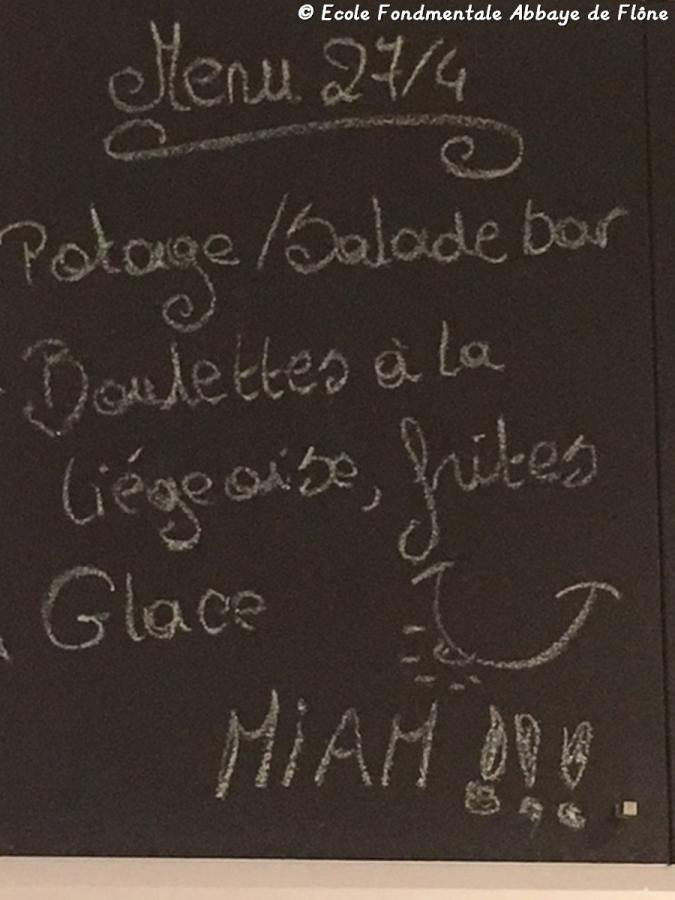 © Ecole Fondmentale Abbaye de Flône
Menu 27/4
Potage / Salade bar
Boulettes à la
liégeoise, frites
Glace
MiAM !!!